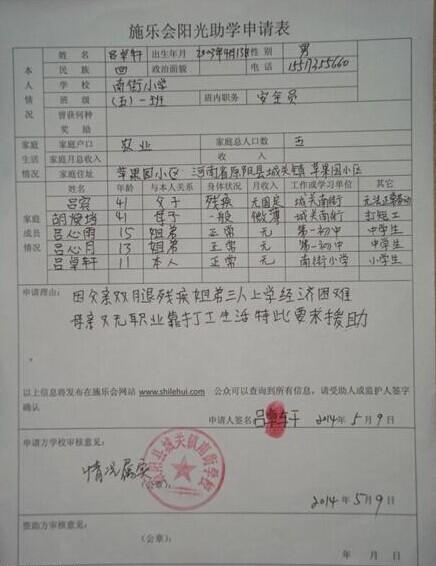 施乐会阳光助学申请表
本人情况 姓名 吕卓轩 出生年月 2003年4月13日 性别 男
民族 四 政治面貌 电话 15517355660
学校 南街小学
班级 (五)一班 班内职务 安全员
曾获何种奖励
家庭生活情况 家庭户口 农业 家庭总人口数 五
家庭月总收入 收入
家庭住址 苹果园小区 河南省原阳县城关镇苹果园小区
家庭成员情况 姓名 年龄 与本人关系 身体状况 月收入 工作或学习单位 其它
吕宾 41 父子 残疾 无固定 城关南街 无法正常劳动
41 母子 一般 微薄 城关南街 打短工
吕心雨 15 姐弟 正常 无 第一初中 中学生
吕心月 13 姐弟 正常 无 第一初中 中学生
吕卓轩 11 本人 正常 无 南街小学 小学生
申请理由: 因父亲双月退残疾姐弟三人上学经济困难
母亲又无职业靠打工生活特此要求援助
以上信息将发布在施乐会网站 www.shilehui.com 公众可以查询到所有信息,请受助人或监护人签字
确认
申请人签名 吕卓轩 2014年5月9
申请方学校审核意见:
情况属实
(公章):
原阳县城关镇南街学校
2014年5月9日
资助方审核意见:
(公章): 年 月 日